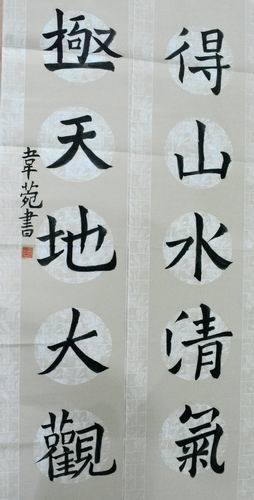 得山水清氣
極天地大觀
韋菀書